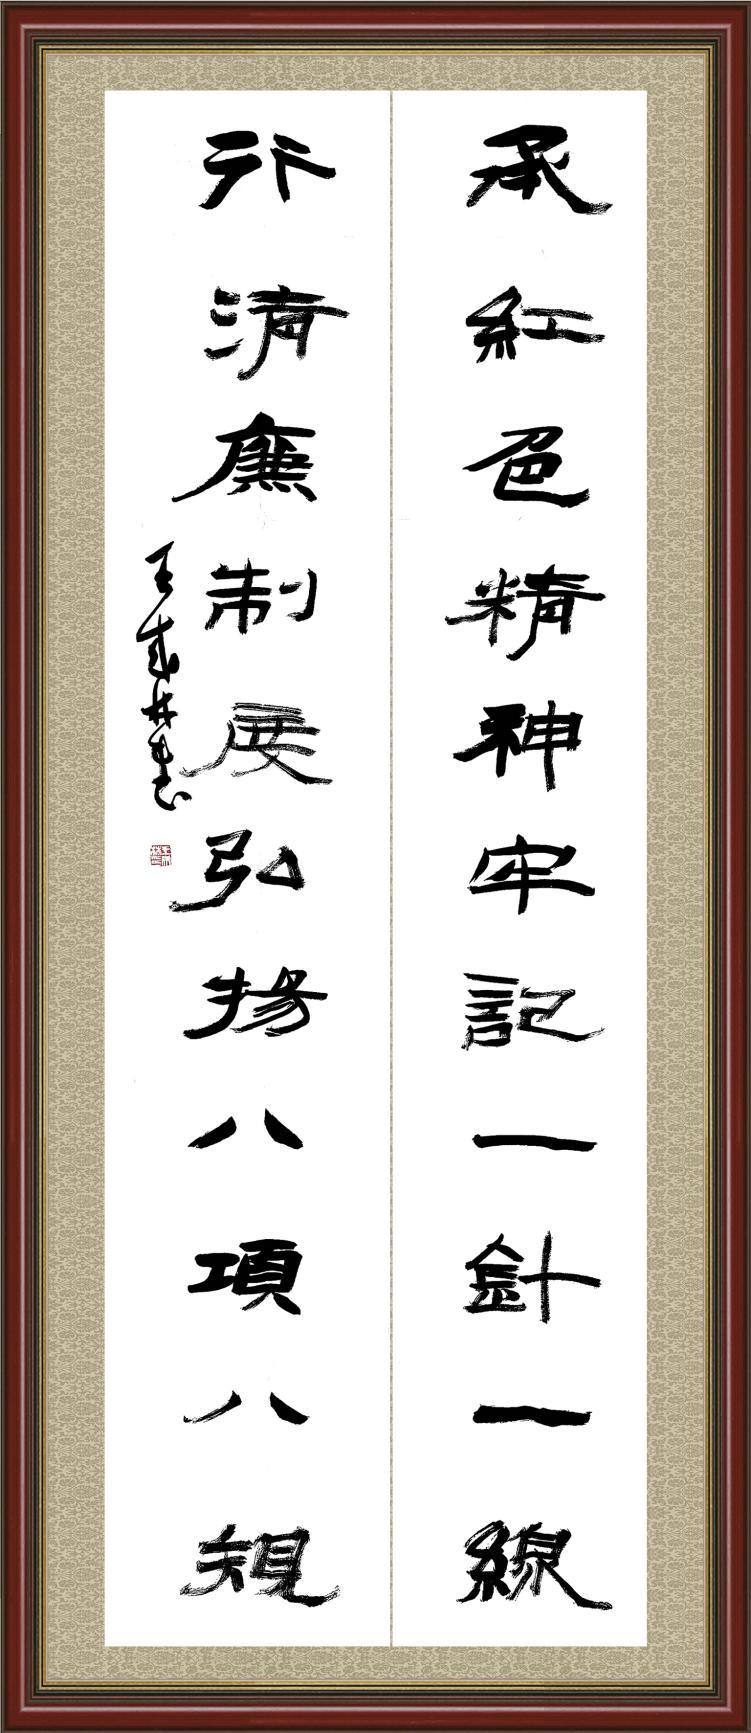 承紅色精神牢記一針一線
行清廉制展弘揚八項八規
王成林書